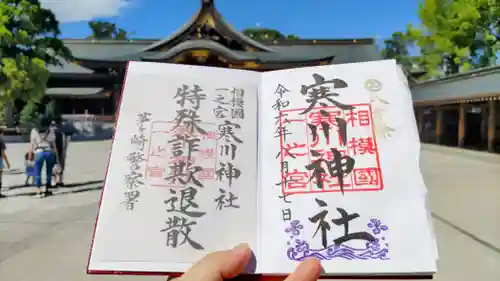 八方除
寒川神社
令和六年八月十七日
相模國
一之宮
寒川神社
相模國
一之宮
寒川神社
特殊詐欺退散
茅ヶ崎警察署